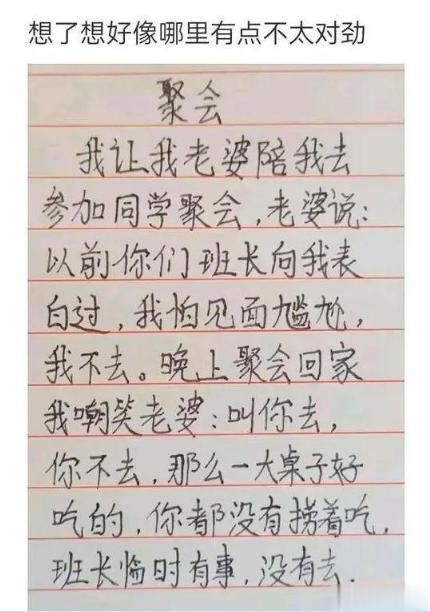 想了想好像哪里有点不太对劲
聚会
我让我老婆陪我去
参加同学聚会,老婆说:
以前你们班长向我表
白过,我怕见面尴尬,
我不去。晚上聚会回家
我嘲笑老婆:叫你去,
你不去,那么一大桌子好
吃的,你都没有捞着吃,
班长临时有事,没有去.